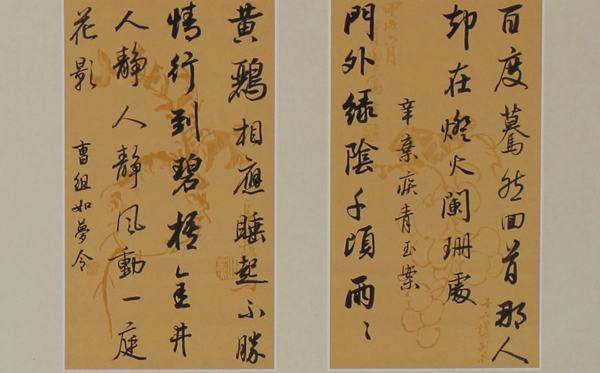 百度驀然回首那人
却在燈火闌珊處
辛棄疾青玉案
門外綠陰千頃兩〻
黃鸝相應睡起不勝
情行到碧梧金井
人靜人靜風動一庭
花影
曹組如夢令